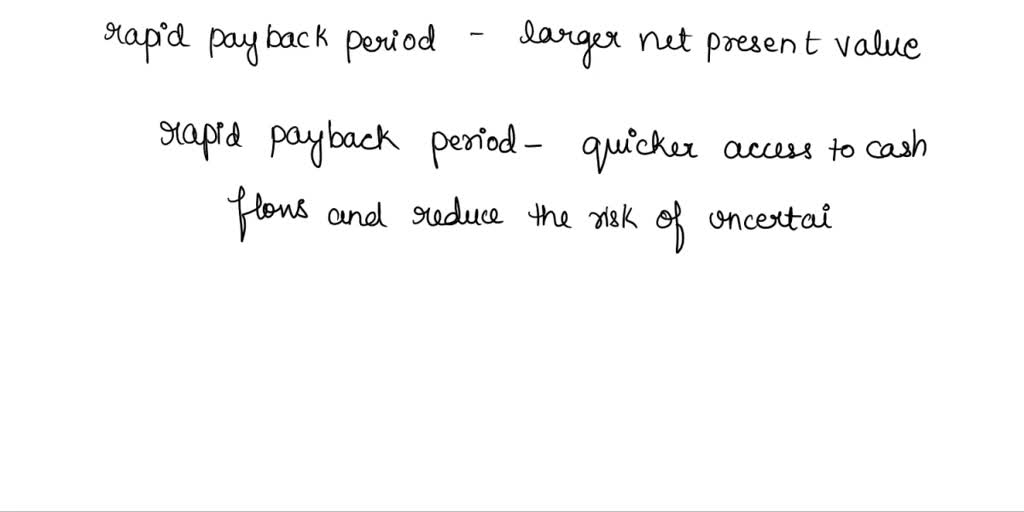 rapid payback period - larger net present value
rapid payback period - quicker access to cash
flows and reduce the risk of uncertai